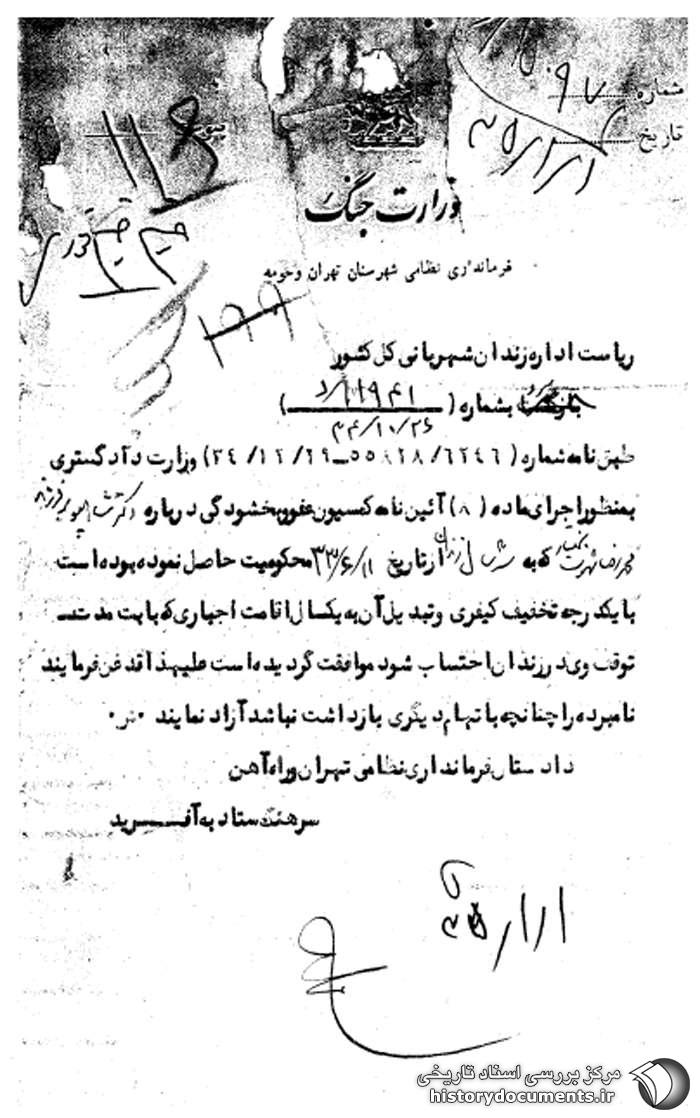 شماره ۹۷
تاریخ
۱۱۶
وزارت جنگ
فرمانداری نظامی شهرستان تهران وحومه
۱۹۹
ریاست اداره زندان شهربانی کل کشور
بشماره ( ۱۱۹۴۱/د )
۳۴/۱۰/۲۶
طبق نامه شماره ( ۶۲۴۶ /۵۵۸۲۸ــ۲۹ /۱۲ /۳۴ ) وزارت دادگستری
بمنظور اجرای ماده ( ۸ ) آئین نامه کمسیون عفو و بخشودگی درباره دکتر
محمدرضا شهرت که به شش سال زندان از تاریخ ۳۳/۶/۱۱ محکومیت حاصل نموده بوده است
با یکدرجه تخفیف کیفری وتبدیل آن به یکسال اقامت اجباری که بابت مدت
توقف وی در زندان احتساب شود موافقت گردیده است علیهذا قدغن فرمایند
نامبرده را چنانچه باتهام دیگری بازداشت نباشد آزاد نمایند
دادستان فرمانداری نظامی تهران وراه آهن
سرهنگ ستاد به آفــرید
مرکز بررسی اسناد تاریخی
historydocuments.ir